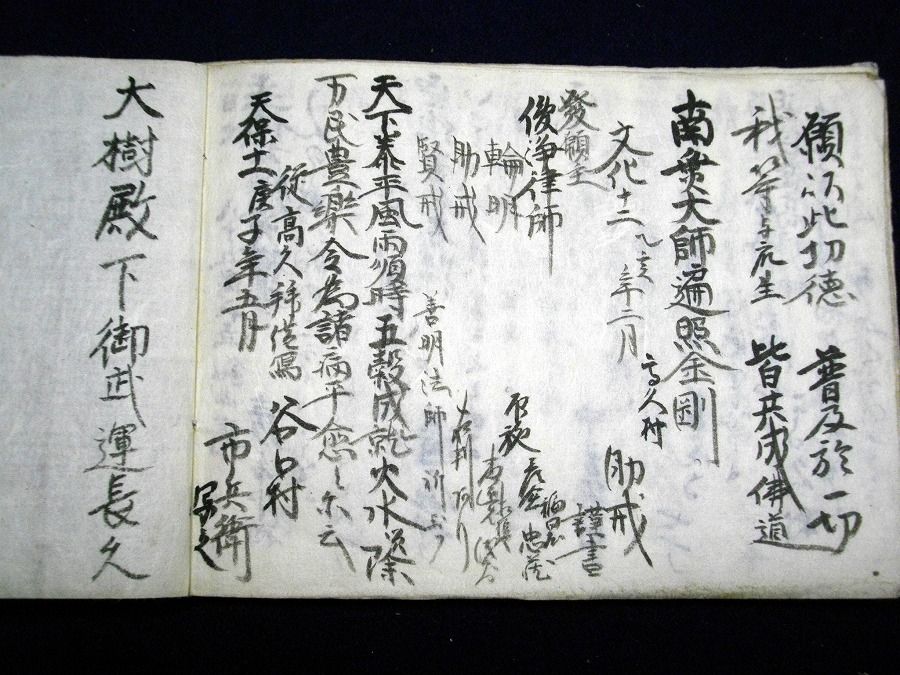 願以此功徳 普及於一切
我等与衆生 皆共成佛道
南無大師遍照金剛
文化十二乙亥年二月 高久村 助戒
謹書
發願主
俊浄律師 布施
輪明
助戒
賢戒 善明法師
天下泰平風雨順時五穀成就火水除
万民豊樂令為諸病平愈
従高久拝借写 谷口村
天保十一庚子年五月 市兵衛
写之
大樹殿下御武運長久